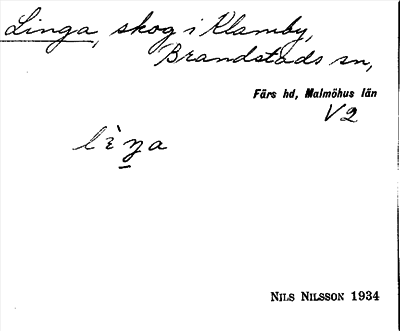 Linga, skog i Klamby,
Brandstads sn,
Färs hd, Malmöhus län
V2
lìŋa
NILS NILSSON 1934